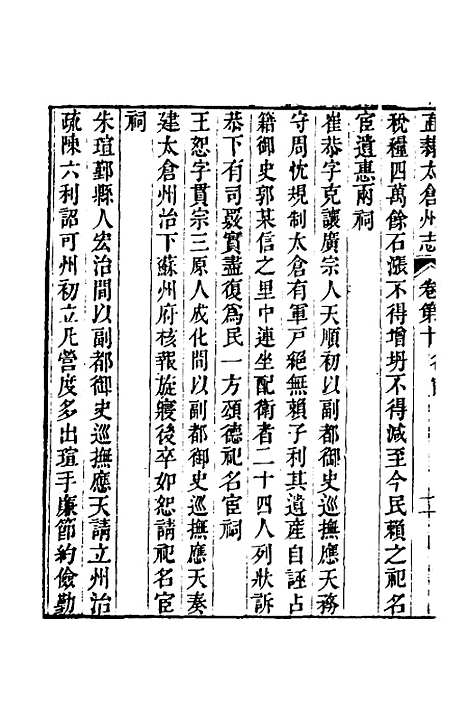 直隸太倉州志 卷第十名宦
稅糧四萬餘石漲不得增坍不得減至今民賴之祀名
宦遺惠兩祠
崔恭字克讓廣宗人天順初以副都御史巡撫應天務
守周忱規制太倉有軍戸絕無賴子利其遺産自誣占
籍御史郭某信之里中連坐配衛者二十四人列狀訴
恭下有司覈實盡復爲民一方頌德祀名宦祠
王恕字貫宗三原人成化間以副都御史巡撫應天奏
建太倉州治下蘇州府核報旋寢後卒如恕請祀名宦
祠
朱瑄鄞縣人宏治間以副都御史巡撫應天請立州治
疏陳六利詔可州初立凡營度多出瑄手廉節約儉勤